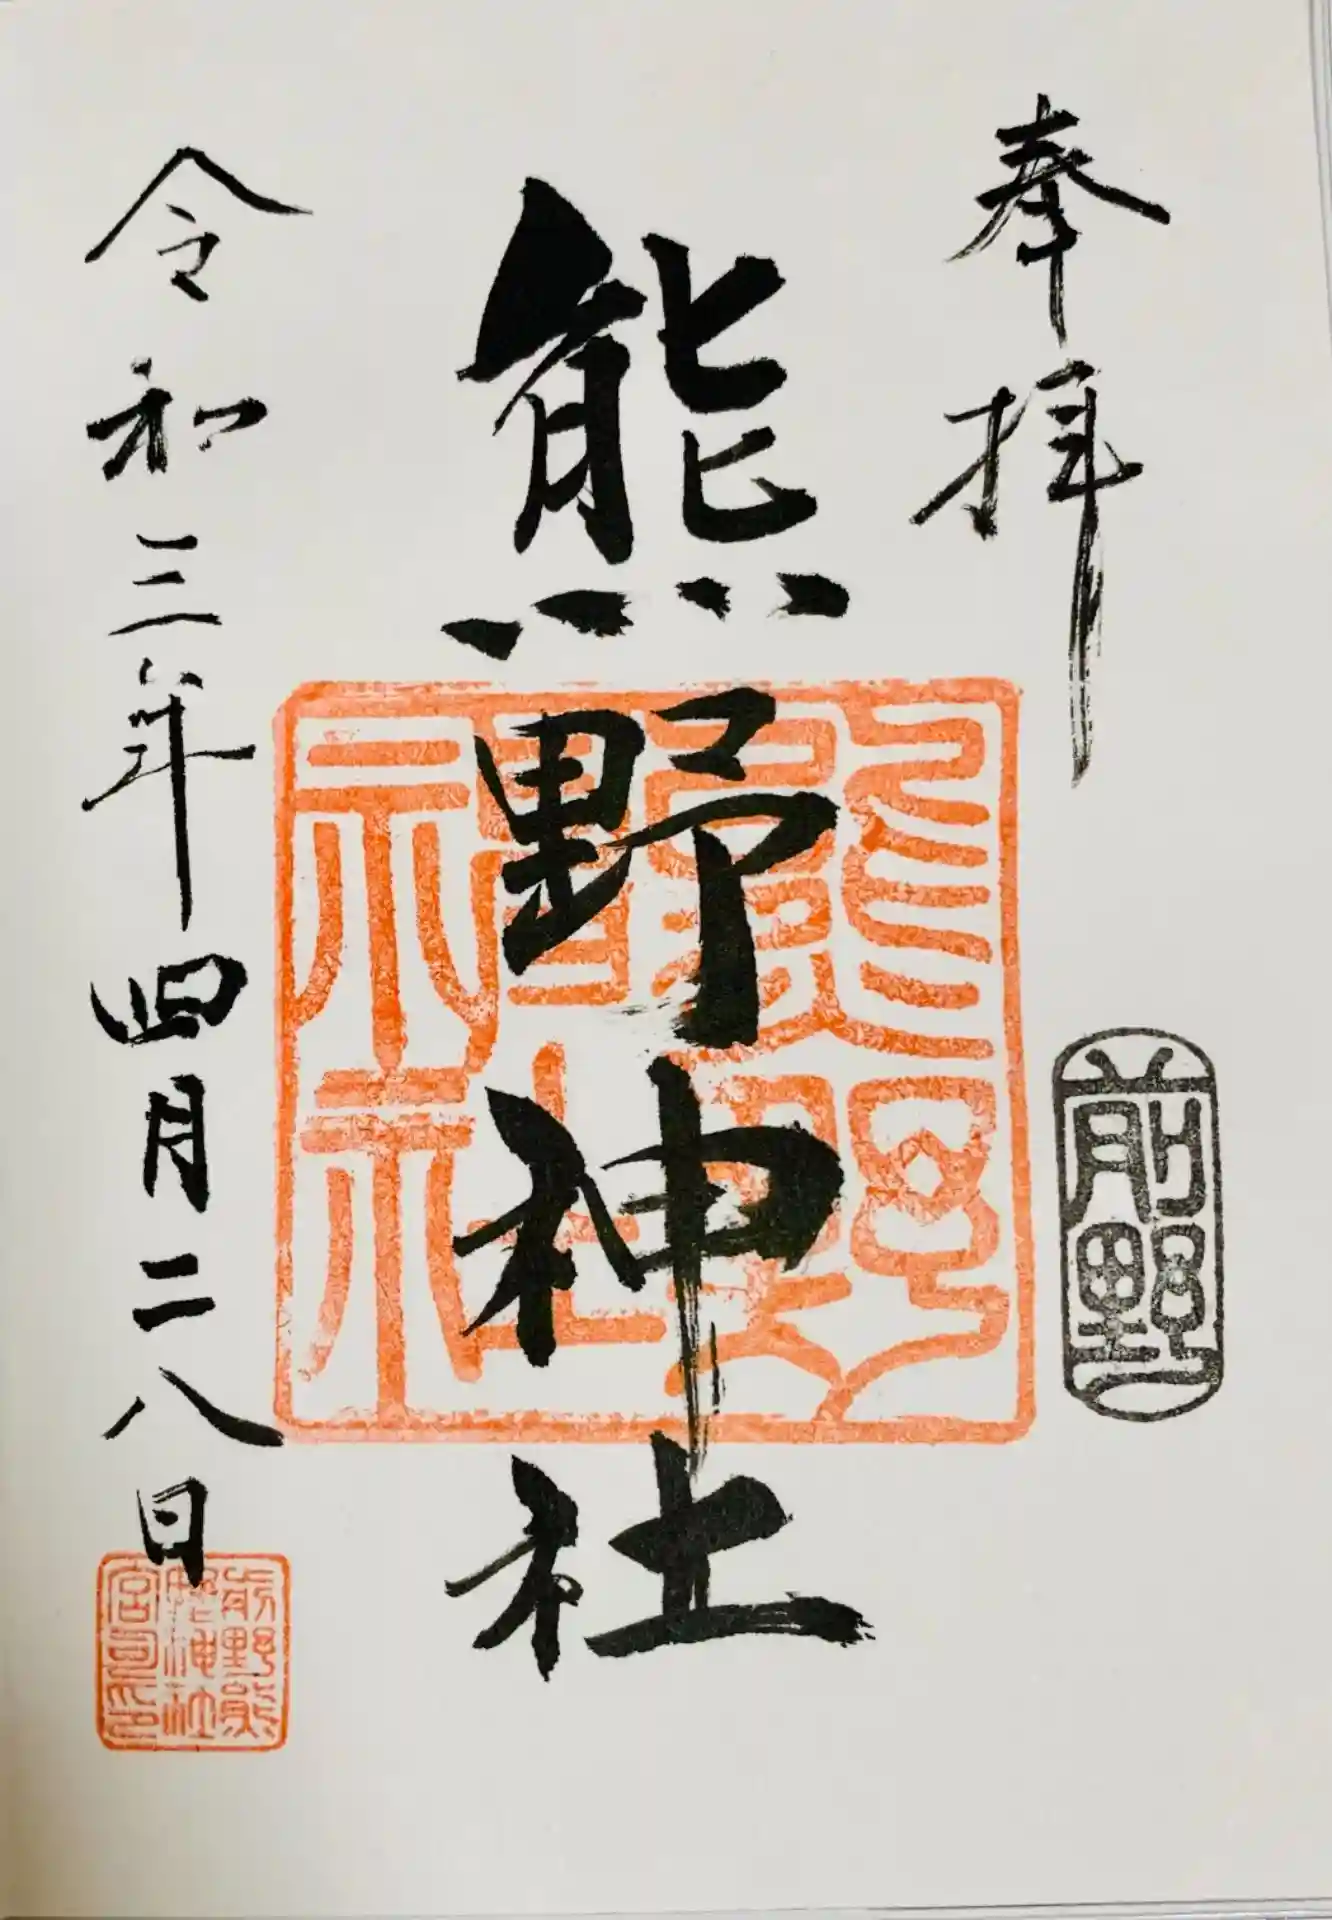 奉拝
前野
熊野神社
熊野神社
令和三年四月二八日
前野熊
野神社
宮司之印